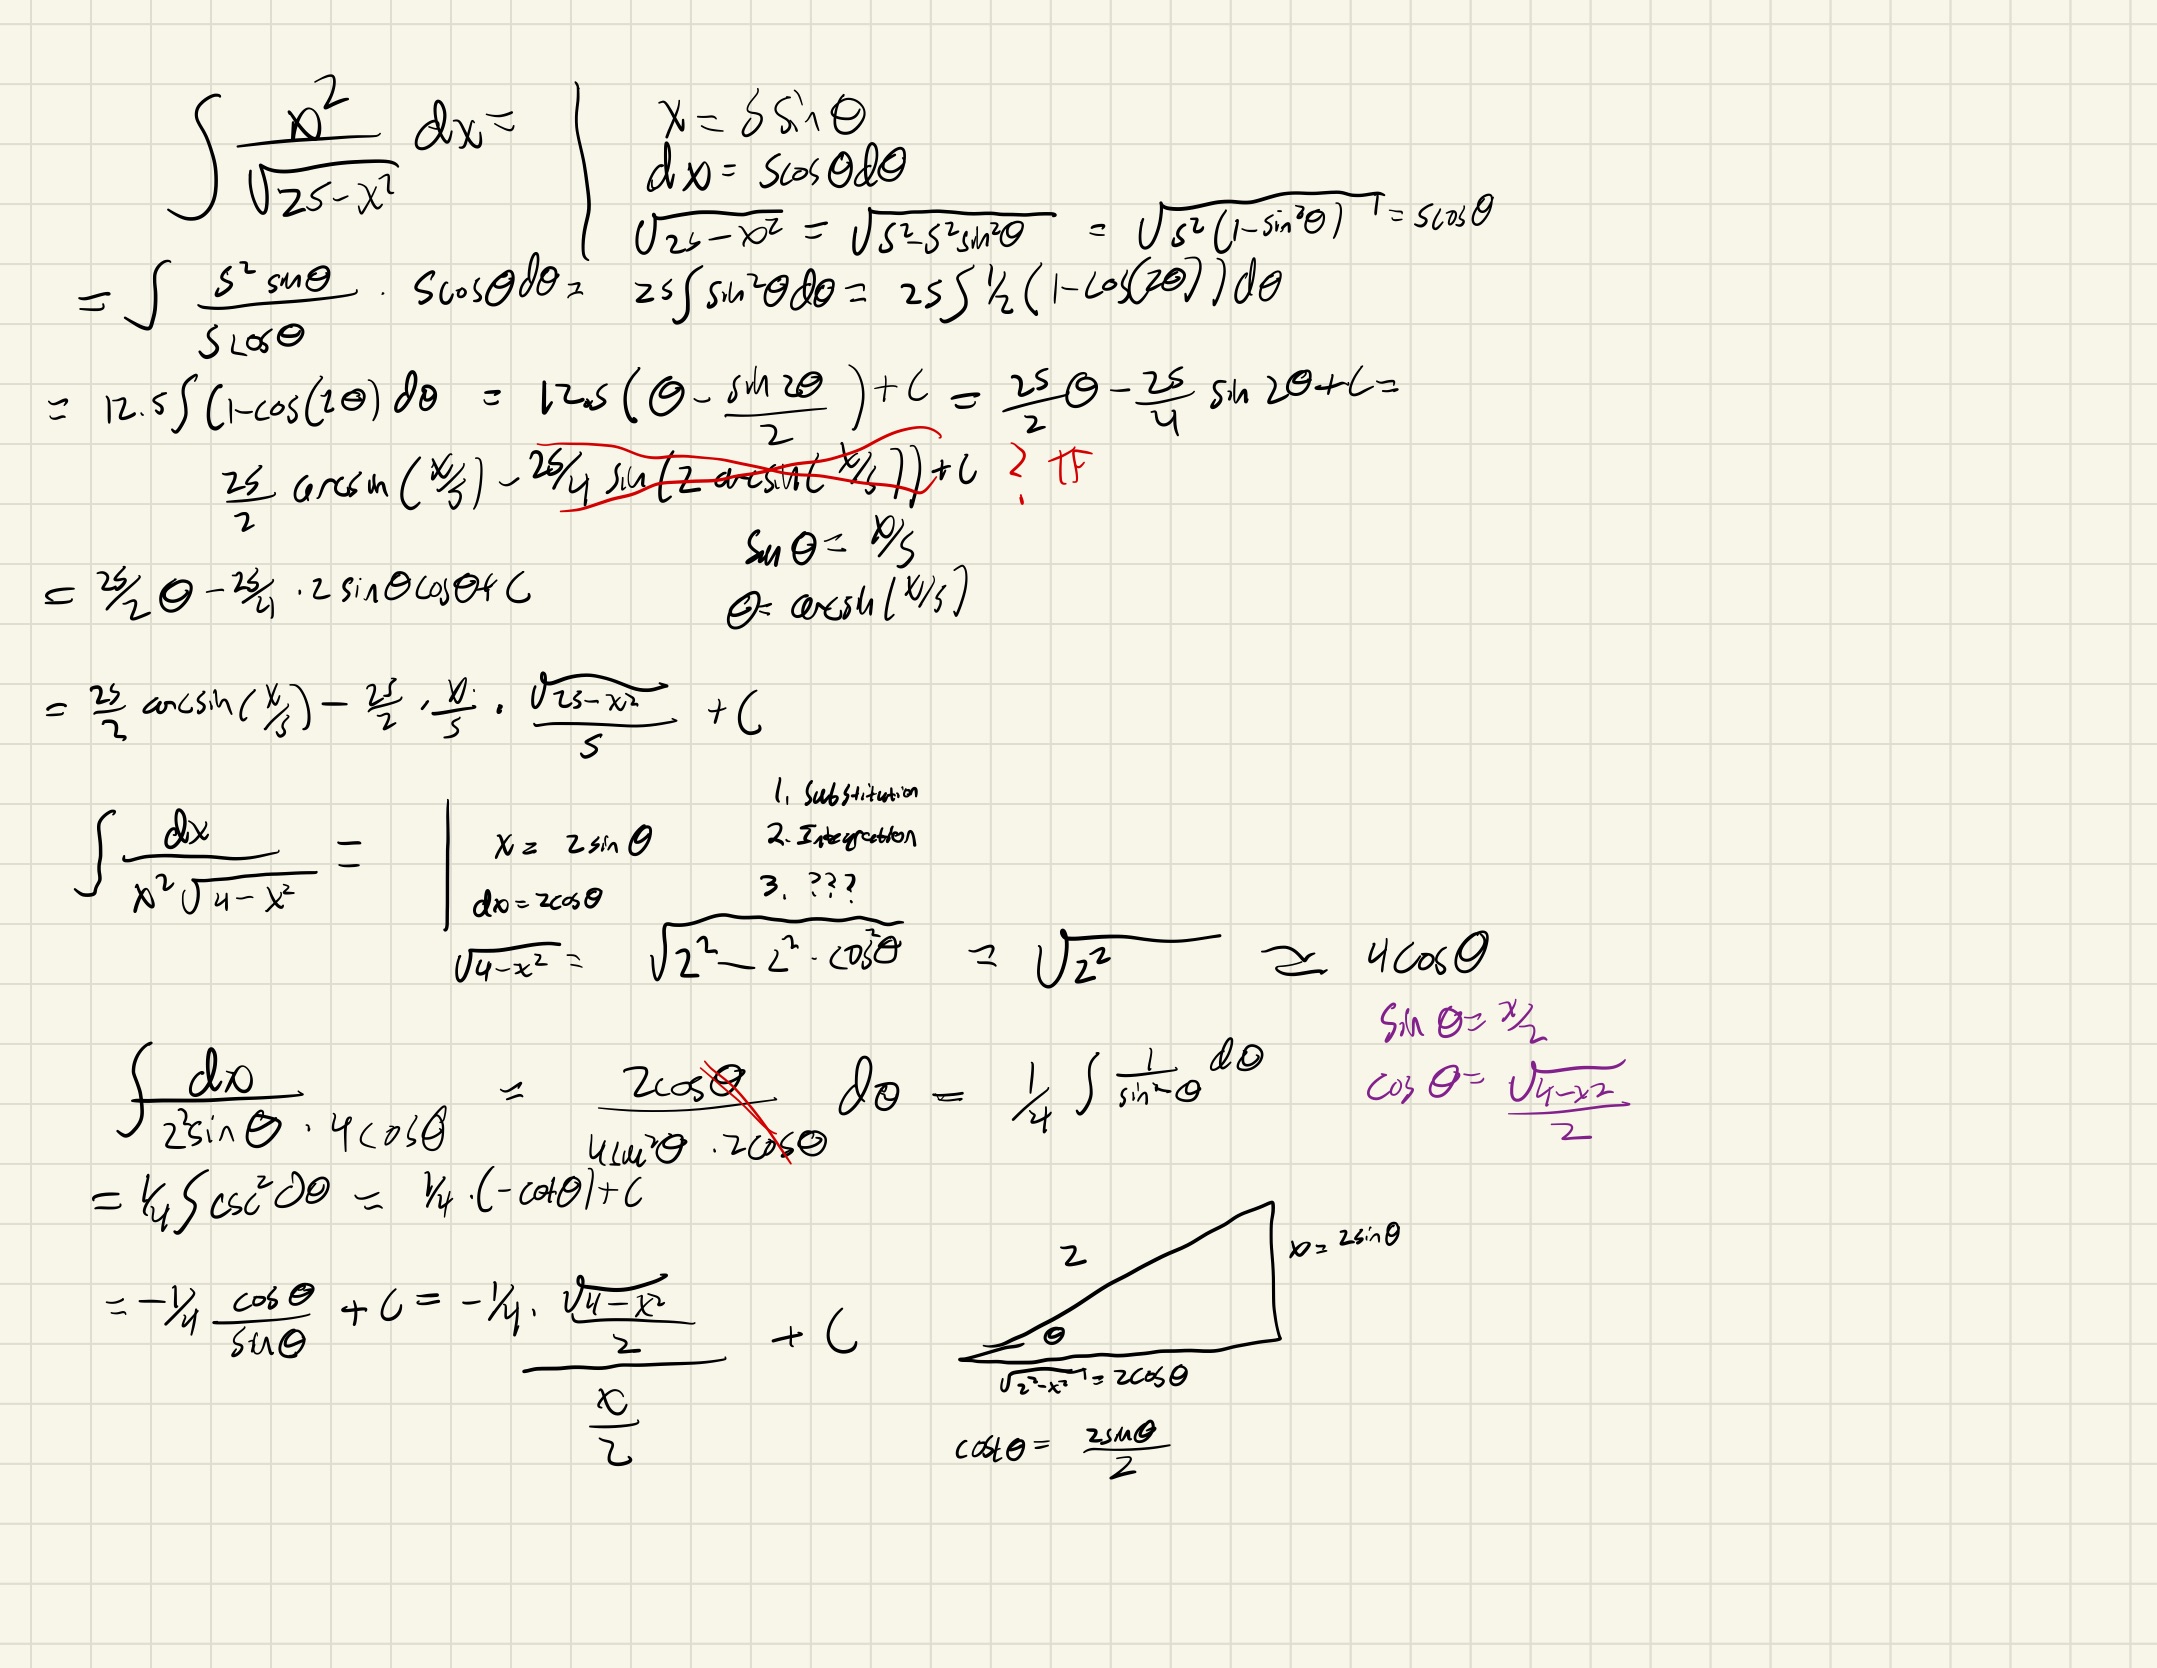 ∫ x²/√(25-x²) dx = | x = 5 sin θ
dx = 5cos θ dθ
√(25-x²) = √(5²-5²sin²θ) = √(5²(1-sin²θ)) = 5cosθ
= ∫ 5² sinθ/5cosθ · 5cosθ dθ = 25∫sin²θdθ = 25∫½(1-cos(2θ))dθ
= 12.5∫(1-cos(2θ) dθ = 12.5(θ - sin 2θ/2) + C = 25/2 θ - 25/4 sin 2θ + C =
25/2 arcsin(x/5) - 25/4 sin(2 arcsin(x/5)) + C ?
sin θ = x/5
= 25/2 θ - 25/4 · 2 sinθcosθ + C
θ = arcsin(x/5)
= 25/2 arcsin(x/5) - 25/2 · x/5 · √(25-x²)/5 + C
1. Substitution
2. Integration
3. ???
∫ dx/x²√(4-x²) = | x = 2 sin θ
dx = 2cosθ
√(4-x²) = √(2² - 2² · cos²θ) = √2² = 4cosθ
sin θ = x/2
cos θ = √(4-x²)/2
∫ dx/2²sin θ · 4cosθ = 2cosθ/4sin²θ · 2cosθ dθ = 1/4 ∫ 1/sin²θ dθ
= ¼∫csc²dθ = ¼ · (-cotθ) + C
2
x = 2sinθ
θ
√(2²-x²) = 2cosθ
= -¼ cosθ/sinθ + C = -¼ · √(4-x²)/2 / x/2 + C
cotθ = 2sinθ/2